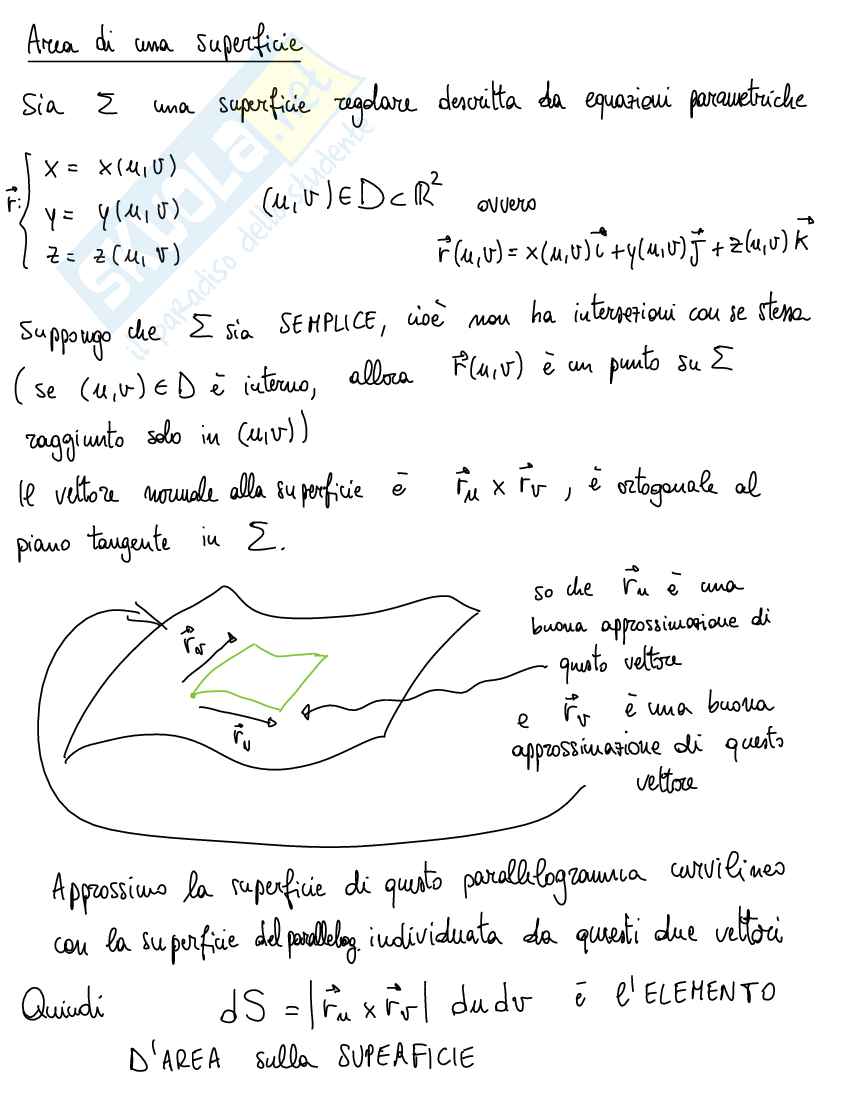 Area di una superficie
Sia Σ una superficie regolare descritta da equazioni parametriche
r⃗: { x = x(u,v)
y = y(u,v)
z = z(u,v)
(u,v) ∈ D ⊂ ℝ² ovvero
r⃗(u,v) = x(u,v) i⃗ + y(u,v) j⃗ + z(u,v) k⃗
Suppongo che Σ sia SEMPLICE, cioè non ha intersezioni con se stessa
( se (u,v) ∈ D è interno, allora r⃗(u,v) è un punto su Σ
raggiunto solo in (u,v))
Il vettore normale alla superficie è r⃗u x r⃗v, è ortogonale al
piano tangente in Σ.
r⃗v
r⃗u
so che r⃗u è una
buona approssimazione di
questo vettore
e r⃗v è una buona
approssimazione di questo
vettore
Approssimo la superficie di questo parallelogramma curvilineo
con la superficie del parallelog. individuata da questi due vettori
Quindi dS = |r⃗u x r⃗v| du dv è l'ELEMENTO
D'AREA sulla SUPERFICIE
SKUOLA.net
il paradiso dello studente